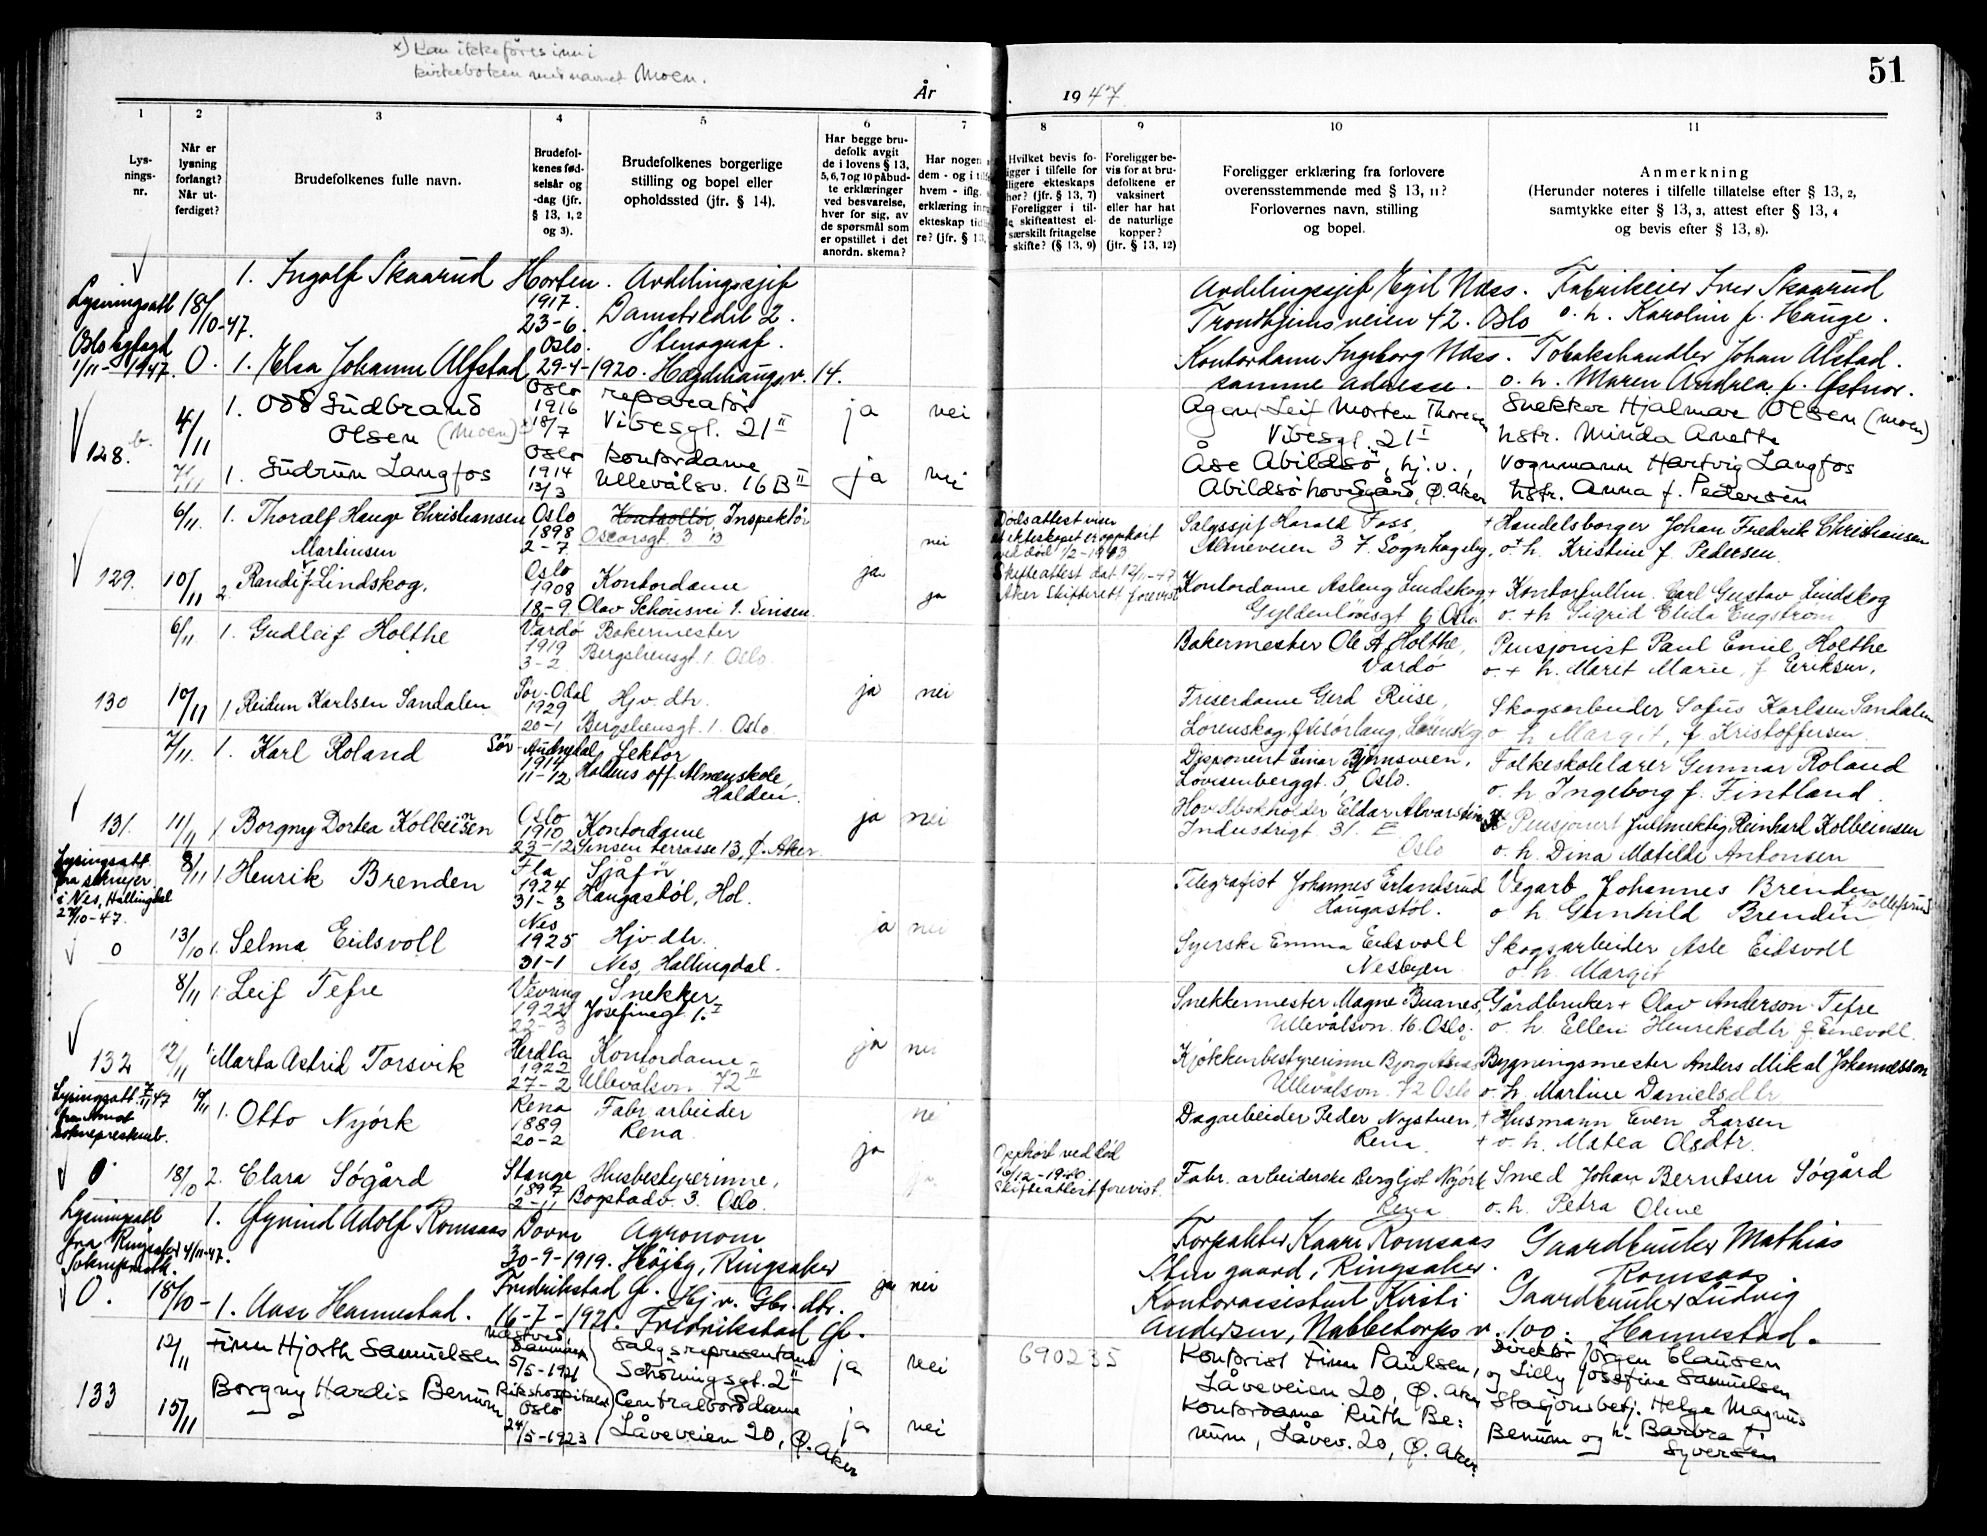 x) Kan ikke føres inn i
kirkeboken med navnet Moen.
År 1947.
51
1 2 3 4 5 6 7 8 9 10 11
Lys-
nings-
nr.
Når er
lysning
forlangt?
Når ut-
ferdiget?
Brudefolkenes fulle navn.
Brudefol-
kenes fød-
selsår og
-dag (jfr.
§ 13, 1, 2
og 3).
Brudefolkenes borgerlige
stilling og bopel eller
opholdssted (jfr. § 14).
Har begge bru-
defolk avgit
de i lovens § 13,
5, 6, 7 og 10 påbud-
te erklæringer
ved besvarelse,
hver for sig, av
de spørsmål som
er opstillet i det
anordn. skema?
Har nogen
dem - og i
hvem - iflg.
erklæring in
ekteskap tid
re? (jfr. § 13,
Hvilket bevis fo-
igger i tilfelle for
ligere ekteskaps
hør? (jfr. § 13, 7)
Foreligger i til-
skifteattest el-
særskilt fritagelse
skifte? (§ 13, 9)
Foreligger be-
vis for at bru-
defolkene er
vaksinert
eller har hat
de naturlige
kopper?
(jfr. § 13, 12)
Foreligger erklæring fra forlovere
overensstemmende med § 13, 11?
Forlovernes navn, stilling
og bopel.
Anmerkning
(Herunder noteres i tilfelle tillatelse efter § 13, 2,
samtykke efter § 13, 3, attest efter § 13, 4
og bevis efter § 13, 8).
Lysningsatt 18/10-47. 1. Ingolf Skaarud Horten. Avdelingssjef
1917. 23-6. Damstredet 2.
Avdelingssjef Egil Næss. Fabrikeier Iver Skaarud
Trondhjemsveien 42. Oslo o. h. Karoline f. Hauge.
Oslo byfogd 1/11-1947. O. 1. Elsa Johanne Alfstad Oslo. 29-4-1920. Stenograf. Hegdehaugsv. 14.
Kontordame Ingeborg Næss. Tobakshandler Johan Alstad.
samme adresse. o. h. Maren Andrea f. Østnor.
128. b. 4/11 1. Odd Gudbrand Olsen (Moen) Oslo 1916 18/7 reparatør Vibesgt. 21 II ja nei
Agent Leif Morten Thoresen Vibesgt. 21 I Snekker Hjalmar Olsen (Moen)
hstr. Minda Anette
7/11 1. Gudrun Langfos Oslo 1914 13/3 kontordame Ullevålsv. 16 B II ja nei
Åse Abildsö, hj.v., Abildsöhovedgård, Ø. Aker Vognmann Hartvig Langfos
hstr. Anna f. Pedersen
6/11. 1. Thoralf Hauge Christiansen Oslo 1898 2-7 Kontrollør, Inspektør Oscarsgt. 3 nei
Dødsattest viser at ekteskapet er opphørt ved død 1/2-1943
Salgssjef Harald Foss, Almeveien 3 7. Sognhageby, + Handelsborger Johan Fredrik Christiansen
o + h. Kristine f. Pedersen.
129. 10/11 2. Randi f. Lindskog, Martinsen Oslo 1908 18-9 Kontordame Olav Schousvei 1. Sinsen. ja ja
Skifteattest dat. 12/11-47 Aker Skifterett forevist
Kontordame Aslaug Lindskog, Gyldenløvesgt 6 Oslo + Kontorfullm. Carl Gustav Lindskog
o. + h Sigrid Elida Engström
6/11. 1. Gudleif Holthe Vardö 1919 3-2 Bakermester Bergslensgt. 1 Oslo.
Bakermester Ole A Holthe, Vardö Pensjonist Paul Emil Holthe
o. + h. Maret Marie, f Eriksen,
130 10/11 1 Reidun Karlsen Sandalen Sør-Odal 1929 20-1 Hjv. dtr. Bergslensgt. 1 Oslo ja nei
Friserdame Gerd Riise, Lørenskog Skogsarbeider Sofus Karlsen Sandalen
o h Margit, f Kristoffersen.
7/11. 1. Karl Roland Sør-Audnedal 1914 11-12 Lektor Haldens off. Almenskole, Halden.
Disponent Einar Bjørnsveen, Lovisenberggt. 5 Oslo. Folkeskolelærer Gunnar Roland
o. h Ingeborg f. Fintland.
131. 11/11 1 Borgny Dortea Kolbeinsen Oslo 1910 23-12 Kontordame Sinsen terrasse 13, Ø. Aker ja nei
Hovedbokholder Eldar Alvarstein Industrigt. 31. Oslo Pensjonert fullmektig Reinhart Kolbeinsen
o. h. Dina Matilde Antonsen
Lysingsatt. fra sokneper i Nes, Hallingdal 27/10-47. 8/11 1 Henrik Brenden Fla 1924 31-3 Sjåför Haugastöl, Hol.
Telegrafist Johannes Erlandsrud Haugastöl. Vegarb Johannes Brenden
o h. Gunhild Brenden f Tollefsrud
O 13/10 1. Selma Eidsvoll Nes 1925 31-1 Hjv. dtr. Nes, Hallingdal. ja nei
Syerske Emma Eidsvoll Nesbyen Skogsarbeider Asle Eidsvoll
o h. Margit
8/11 1. Leif Tefre Vevring 1922 22-3 Snekker Josefinegt 1. I
Snekkermester Magne Buanes, Ullevålsvn. 16. Oslo. Gårdbruker + Olav Anderson Tefre
o. h. Ellen Henriksdtr f. Einevoll.
132 12/11 1. Marta Astrid Torsvik Herdla 1922 27-2 Kontordame Ullevålsvn. 72 II ja nei
Kjøkkenbestyrerinne Ullevålsvn. 72 Oslo Bygningsmester Anders Mikal Johannesson
o. h. Martine Danielsdtr.
Lysingsatt. 7/11 47 fra Åmot sokneprestemb. 14/11 1. Otto Nyörk Rena 1889 20-2 Fabr. arbeider Rena nei
Dagarbeider Peder Nystuen, Rena + Husmann Even Larsen
+ o. h. Matea Olsdtr.
O 18/10 2. Clara Søgård Stange 1897 2-11 Husbestyrerinne, Bogstadv. 3. Oslo. ja ja
Opphørt ved død 16/12-1940. Skifteattest forevist.
Fabr. arbeiderske Bergljot Nyörk Rena Smed Johan Berntsen Søgård
o. h. Petra Oline
Lysningsatt fra Ringsaker 4/11-47. Sokneprestk. 1. Øyvind Adolf Romsaas Dovre 30-9-1919. Agronom Höjby, Ringsaker
Forpakter Kaare Romsaas Stengaard, Ringsaker. Gaardbruker Mathias
Romsaas.
O. 18/10- 1. Aase Hannestad. Fredrikstad Gl. 16-7-1921. Hj v. Gbr. dtr. Fredrikstad Gl. ja nei
Kontorassistent Kirsti Andersen, Nabbetorpsv. 100. Gaardbruker Ludvig
Hannestad.
12/11 Finn Hjorth Samuelsen Næstved, Danmark 5/5-1921 Salgsrepresentant Schöningsgt. 2 II ja nei
690235
Kontorist Finn Paulsen, Låveveien 20, Ø. Aker Direktør Jörgen Clausen
og Lilly Josefine Samuelsen
133 15/11 Borgny Hardis Benum Rikshospitalet Oslo 24/5-1923 Centralborddame Låveveien 20, Ø. Aker ja nei
Kontordame Ruth Be:
num, Låvev. 20, Ø. Aker Stasjonsbetj. Helge Magnus
Benum og h. Barbra f.
Syversen